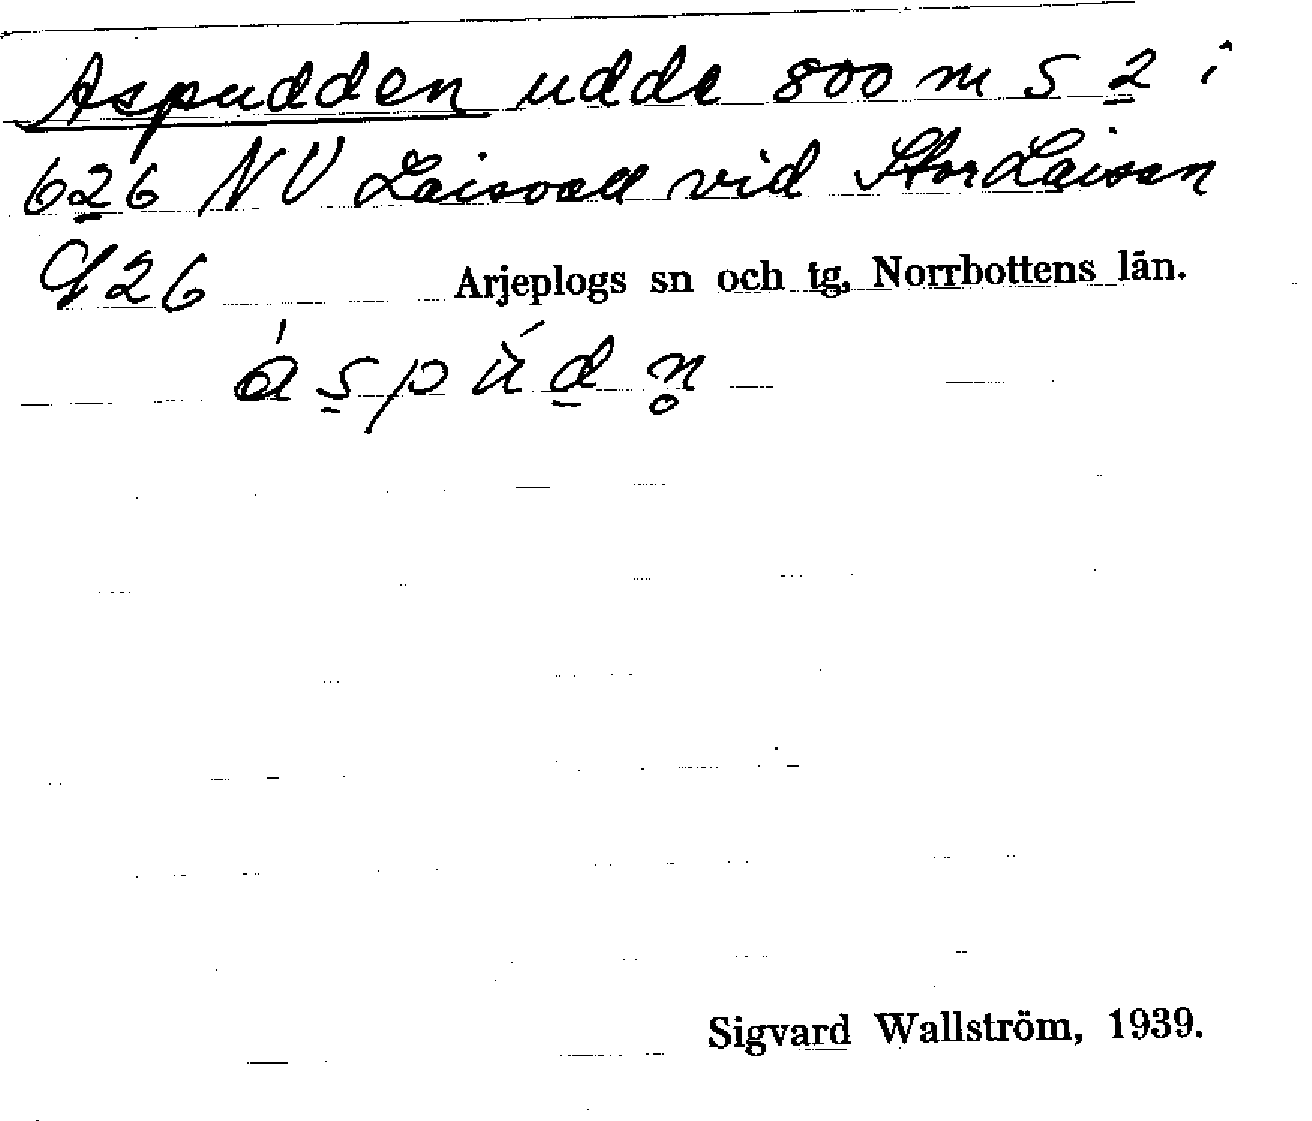 Aspudden udde 800 m S 2 i
626 NV Laisvall vid Stor Laisan
G26 Arjeplogs sn och tg, Norrbottens län.
áspǘdn̥
Sigvard Wallström, 1939.